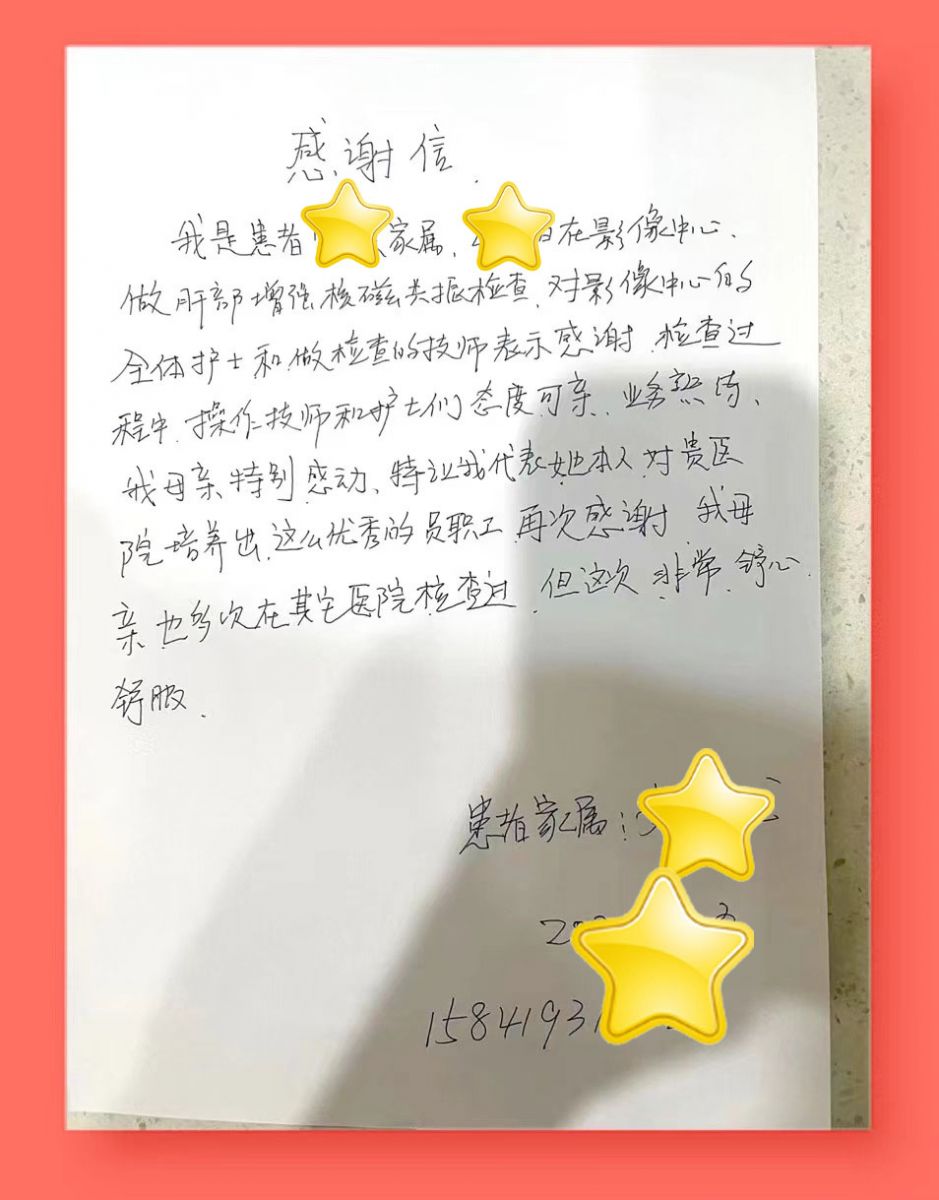 感谢信.
我是患者 家属, 在影像中心、
做肝部增强核磁共振检查,对影像中心的
全体护士和做检查的技师表示感谢.检查过
程中,操作技师和护士们态度可亲、业务熟练、
我母亲特别感动、特让我代表她本人对贵医
院培养出这么优秀的员职工再次感谢.我母
亲也多次在其它医院核查过,但这次非常舒心.
舒服.
患者家属:
15841931